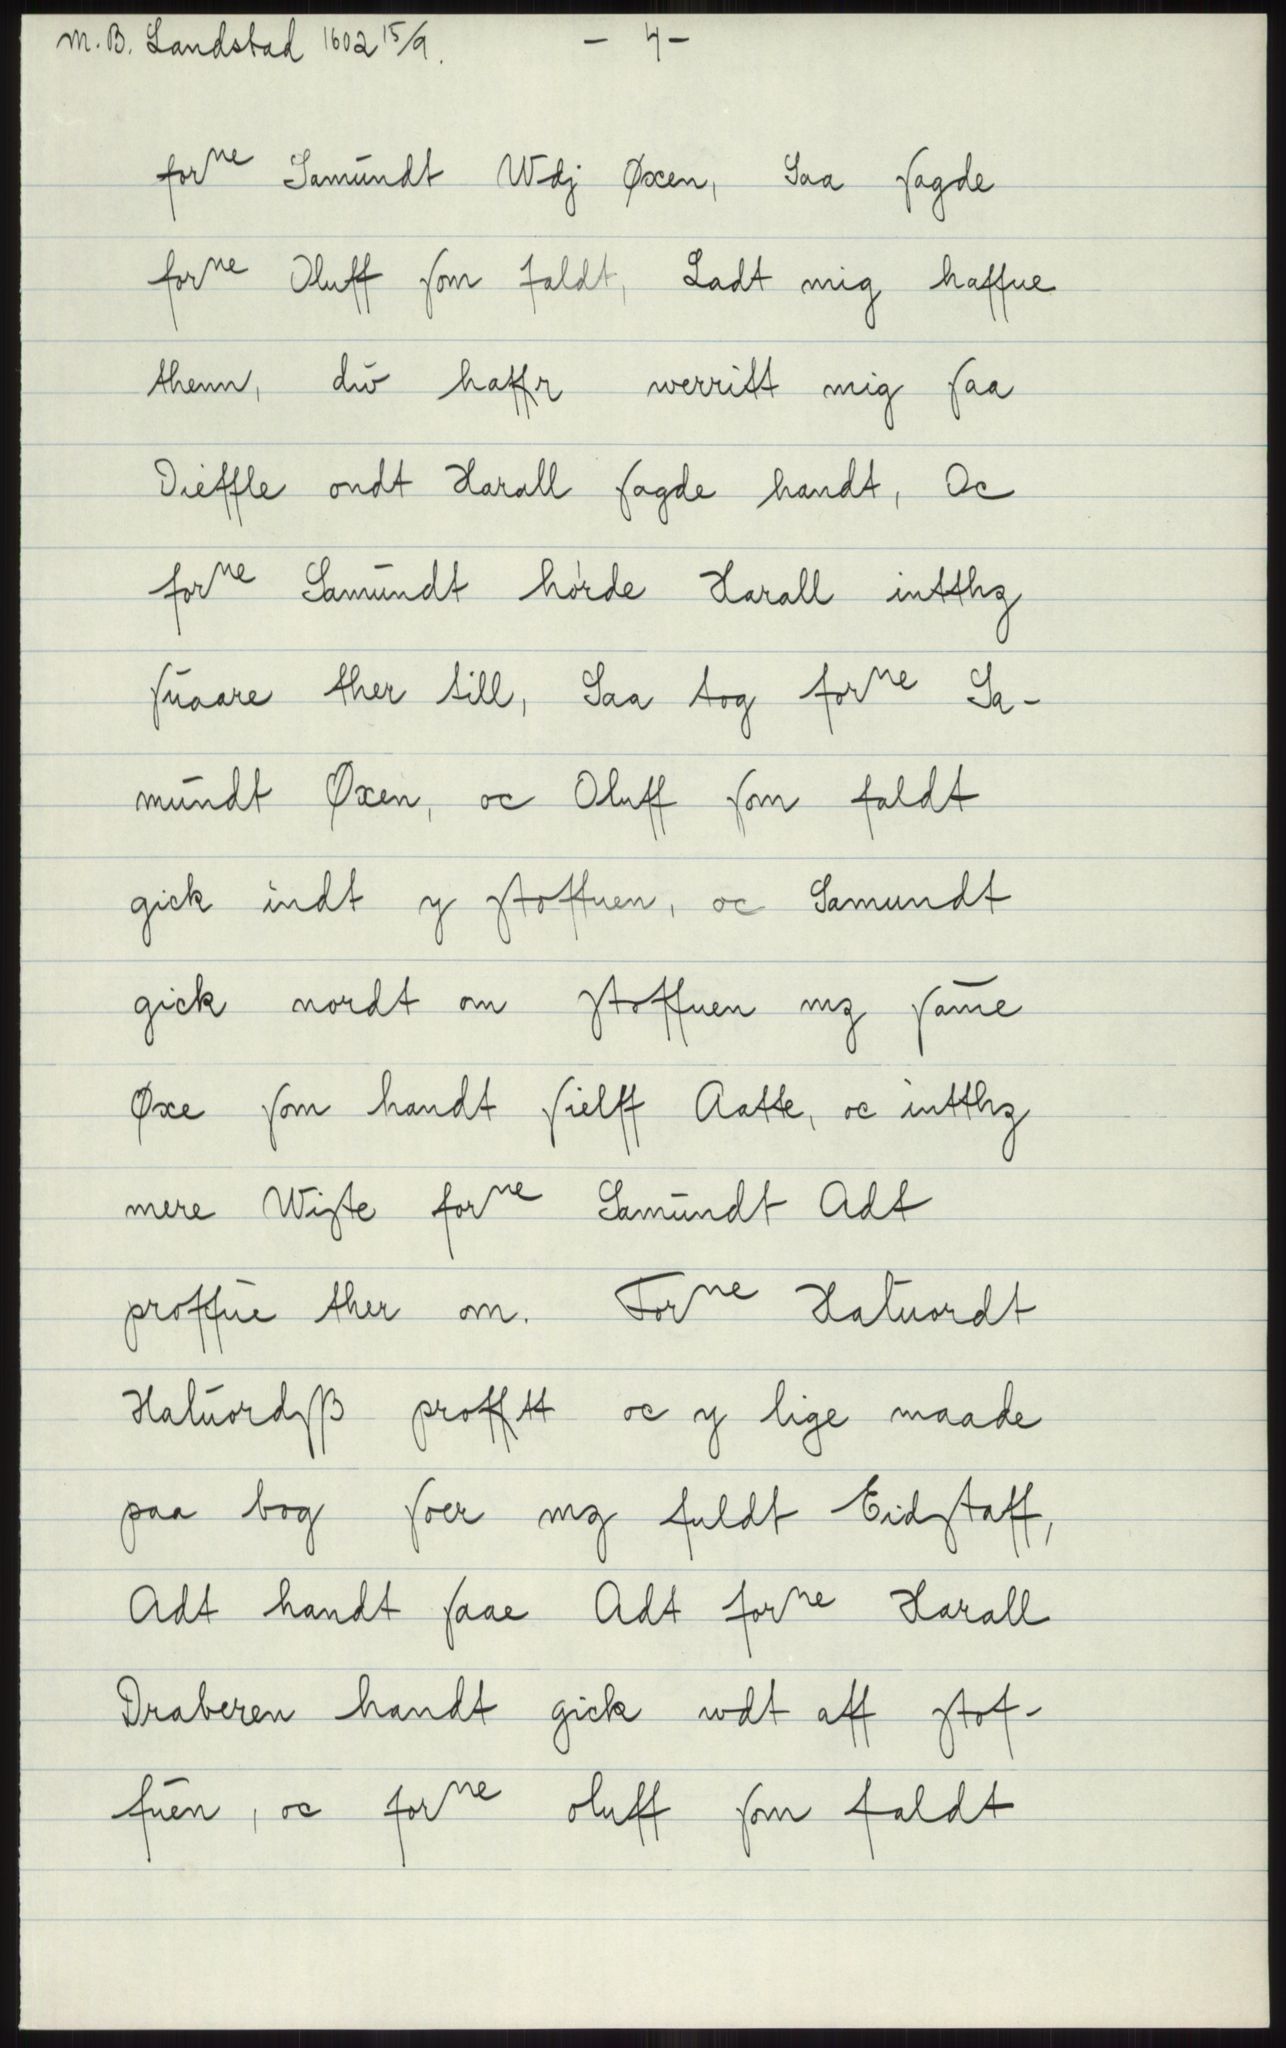 M.B. Landstad 1602 15/9. - 4 -
forne Samundt Wdj Øxen, Saa sagde
forne Oluff som faldt, Ladt mig haffue
thenn, du haffr werritt mig saa
Dieffle ondt Harall sagde handt, Oc
forne Samundt hørde Harall intthz
suaare ther till, Saa tog forne Sa-
mundt Øxen, oc Oluff som faldt
gick indt y stoffuen, oc Samundt
gick nordt om stoffuen mz same
Øxe som handt sielff Aatte, oc intthz
mere Wiste forne Samundt Adt
proffue ther om. Forne Haluordt
Haluordsß profftt oc y lige maade
paa bog soer mz fuldt Eidstaff,
Adt handt saae Adt forne Harall
Draberen handt gick wdt aff stof-
fuen, oc forne oluff som faldt